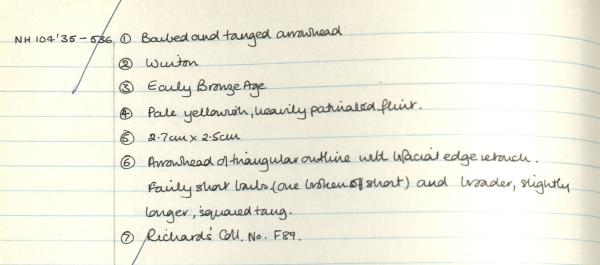 NH 104'35-536 ① Barbed and tanged arrowhead
② Wunton
③ Early Bronze Age
④ Pale yellowish, heavily patinated flint.
⑤ 2.7cm x 2.5cm
⑥ Arrowhead of triangular outline with bifacial edge retouch.
Fairly short barbs (one broken off short) and broader, slightly
longer, squared tang.
⑦ Richards' Coll. No. F89.